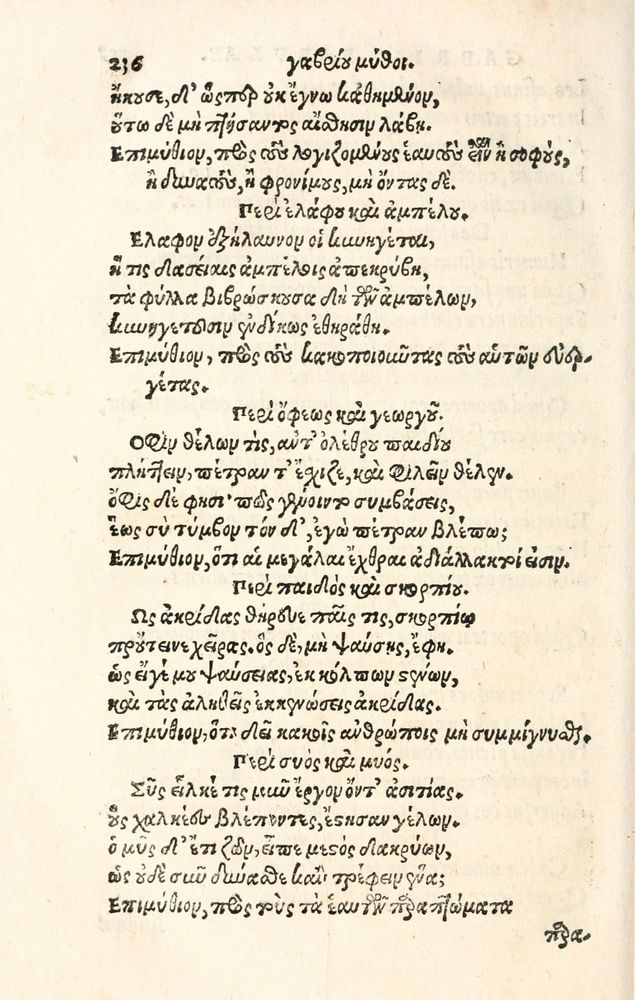 236 γαβρίου μῦθοι.
ἤκουσε, δ' ὥσπερ οὐκ ἔγνω καθημένον,
οὕτω δὲ μὴ πτήσαντος αἴσθησιν λάβῃ.
Επιμύθιον, πρὸς τοὺς λογιζομένους ἑαυτοὺς εἶναι ἢ σοφοὺς,
ἢ δυνατοὺς, ἢ φρονίμους, μὴ ὄντας δέ.
Περὶ ἐλάφου καὶ ἀμπέλου.
Ελαφον ἐξήλαυνον οἱ κυνηγέται,
ἥ τις δασείαις ἀμπέλοις ἀπεκρύβη,
τὰ φύλλα βιβρώσκουσα δὴ τῶν ἀμπέλων,
κυνηγέταισιν ἐνδίκως ἐθηράθη.
Επιμύθιον, πρὸς τοὺς κακοποιοῦντας τοὺς αὑτῶν εὐεργέ-
γέτας.
Περὶ ὄφεως καὶ γεωργοῦ.
Οφιν θέλων τὶς, ἀντ' ὀλέθρου παιδίου
πλήττειν, πέτραν τ' ἔσχιζε, καὶ φιλεῖν θέλεν.
ὄφις δέ φησι· πῶς γένοιντο συμβάσεις,
ἕως σὺ τύμβον τόν δ', ἐγὼ πέτραν βλέπως;
Επιμύθιον, ὅτι αἱ μεγάλαι ἔχθραι ἀδιάλλακτοί εἰσιν.
Περὶ παιδὸς καὶ σκορπίου.
Ως ἀκρίδας θήρευε παῖς τις, σκορπίῳ
προύτεινε χεῖρας. ὃς δὲ, μὴ ψαύσῃς, ἔφη.
ὡς εἴγέ μου ψαύσειας, ἐκ κόλπων στενῶν,
καὶ τὰς ἀληθεῖς ἐκκενώσεις ἀκρίδας.
Επιμύθιον, ὅτι δεῖ κακοῖς ἀνθρώποις μὴ συμμίγνυσθαι.
Περὶ συὸς καὶ μυός.
Σῦς εἷλκέ τις μῦν ἔργον ὄντ' ἀσιτίας.
οὓς χαλκέου βλέποντες, ἔστησαν γέλων.
ὁ μῦς δ' ἔτι ζῶν, εἶπε μεστὸς δακρύων,
ὡς οὐδὲ σμῦν δύνασθε κᾂν τρέφειν ἕνα;
Επιμύθιον, πρὸς τοὺς τὰ ἑαυτῶν παραπτώματα
παρα-